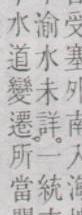 受塞外南入海
渝水未詳一統
水道變遷所當